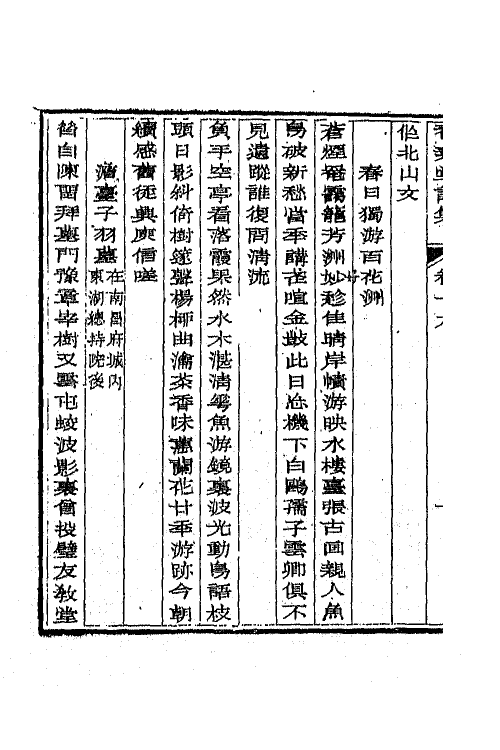 他北山文
春日獨游百花洲
蒼煙宿靄籠芳洲妙趁佳晴岸幘游映水樓臺張古画親人魚
鳥破新愁當年講苑喧金鼓此日忘機下白鷗孺子雲卿俱不
見遺蹤誰復問清流
負手空亭看落霞果然水木湛清華魚游鏡裏波光動鳥語枝
頭日影斜倚樹篴聲楊柳曲瀹茶香味蕙蘭花廿年游跡今朝
續感舊徒興庾信嗟
澹臺子羽墓 在南昌府城內
東湖總持院後
自陳留拜墓門豫章宰樹又雲屯蛟波影裏曾投璧友教堂